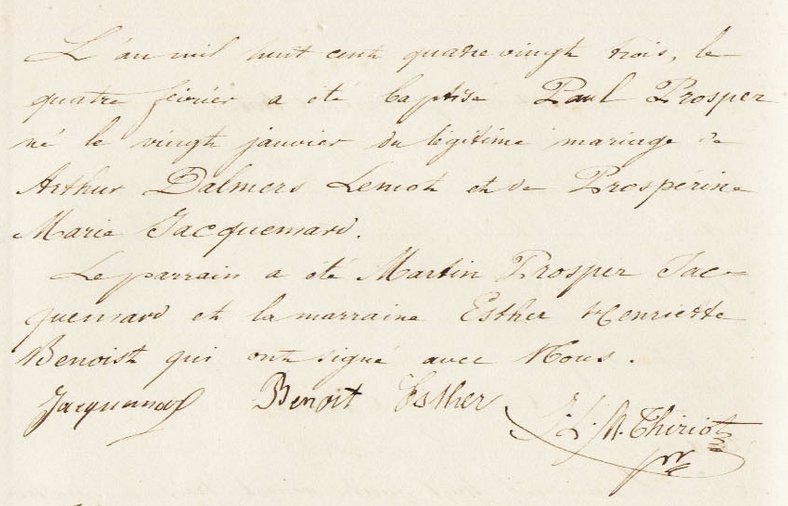 L'an mil huit cent quatre vingt trois, le
quatre février a été baptisé Paul Prosper
né le vingt janvier du légitime mariage de
Arthur Dalmers Lemoh et de Prospérine
Marie Jacquemard.
Le parrain a été Martin Prosper Jac-
quemard et la marraine Esther Henriette
Benoist qui ont signé avec Nous.
Jacquemard Benoit Esther J. L. M. Thiriot